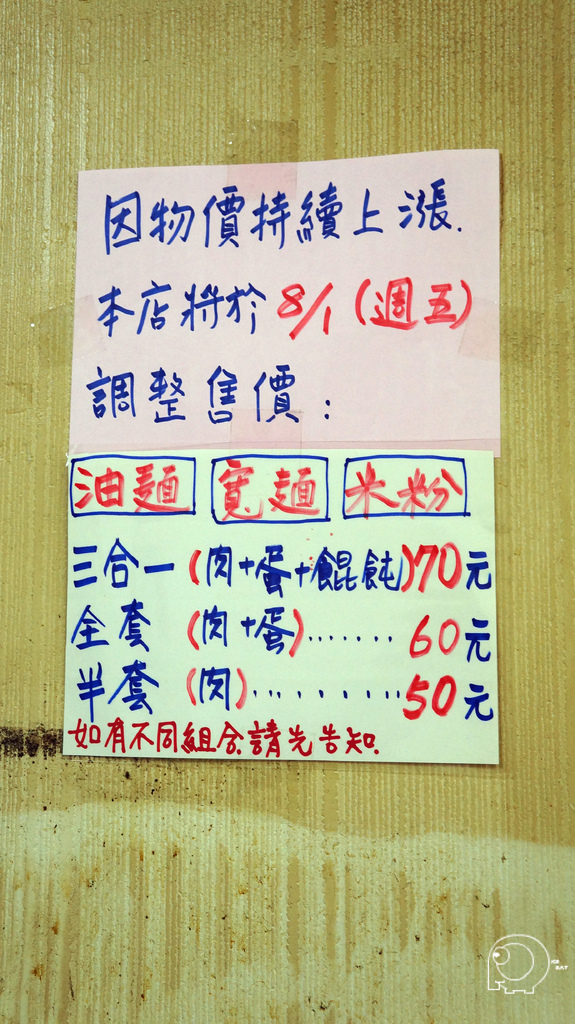 因物價持續上漲.
本店將於8/1(週五)
調整售價:
油麵 寬麵 米粉
三合一(肉+蛋+餛飩)70元
全套 (肉+蛋)....... 60元
半套 (肉)..........50元
如有不同組合請先告知.